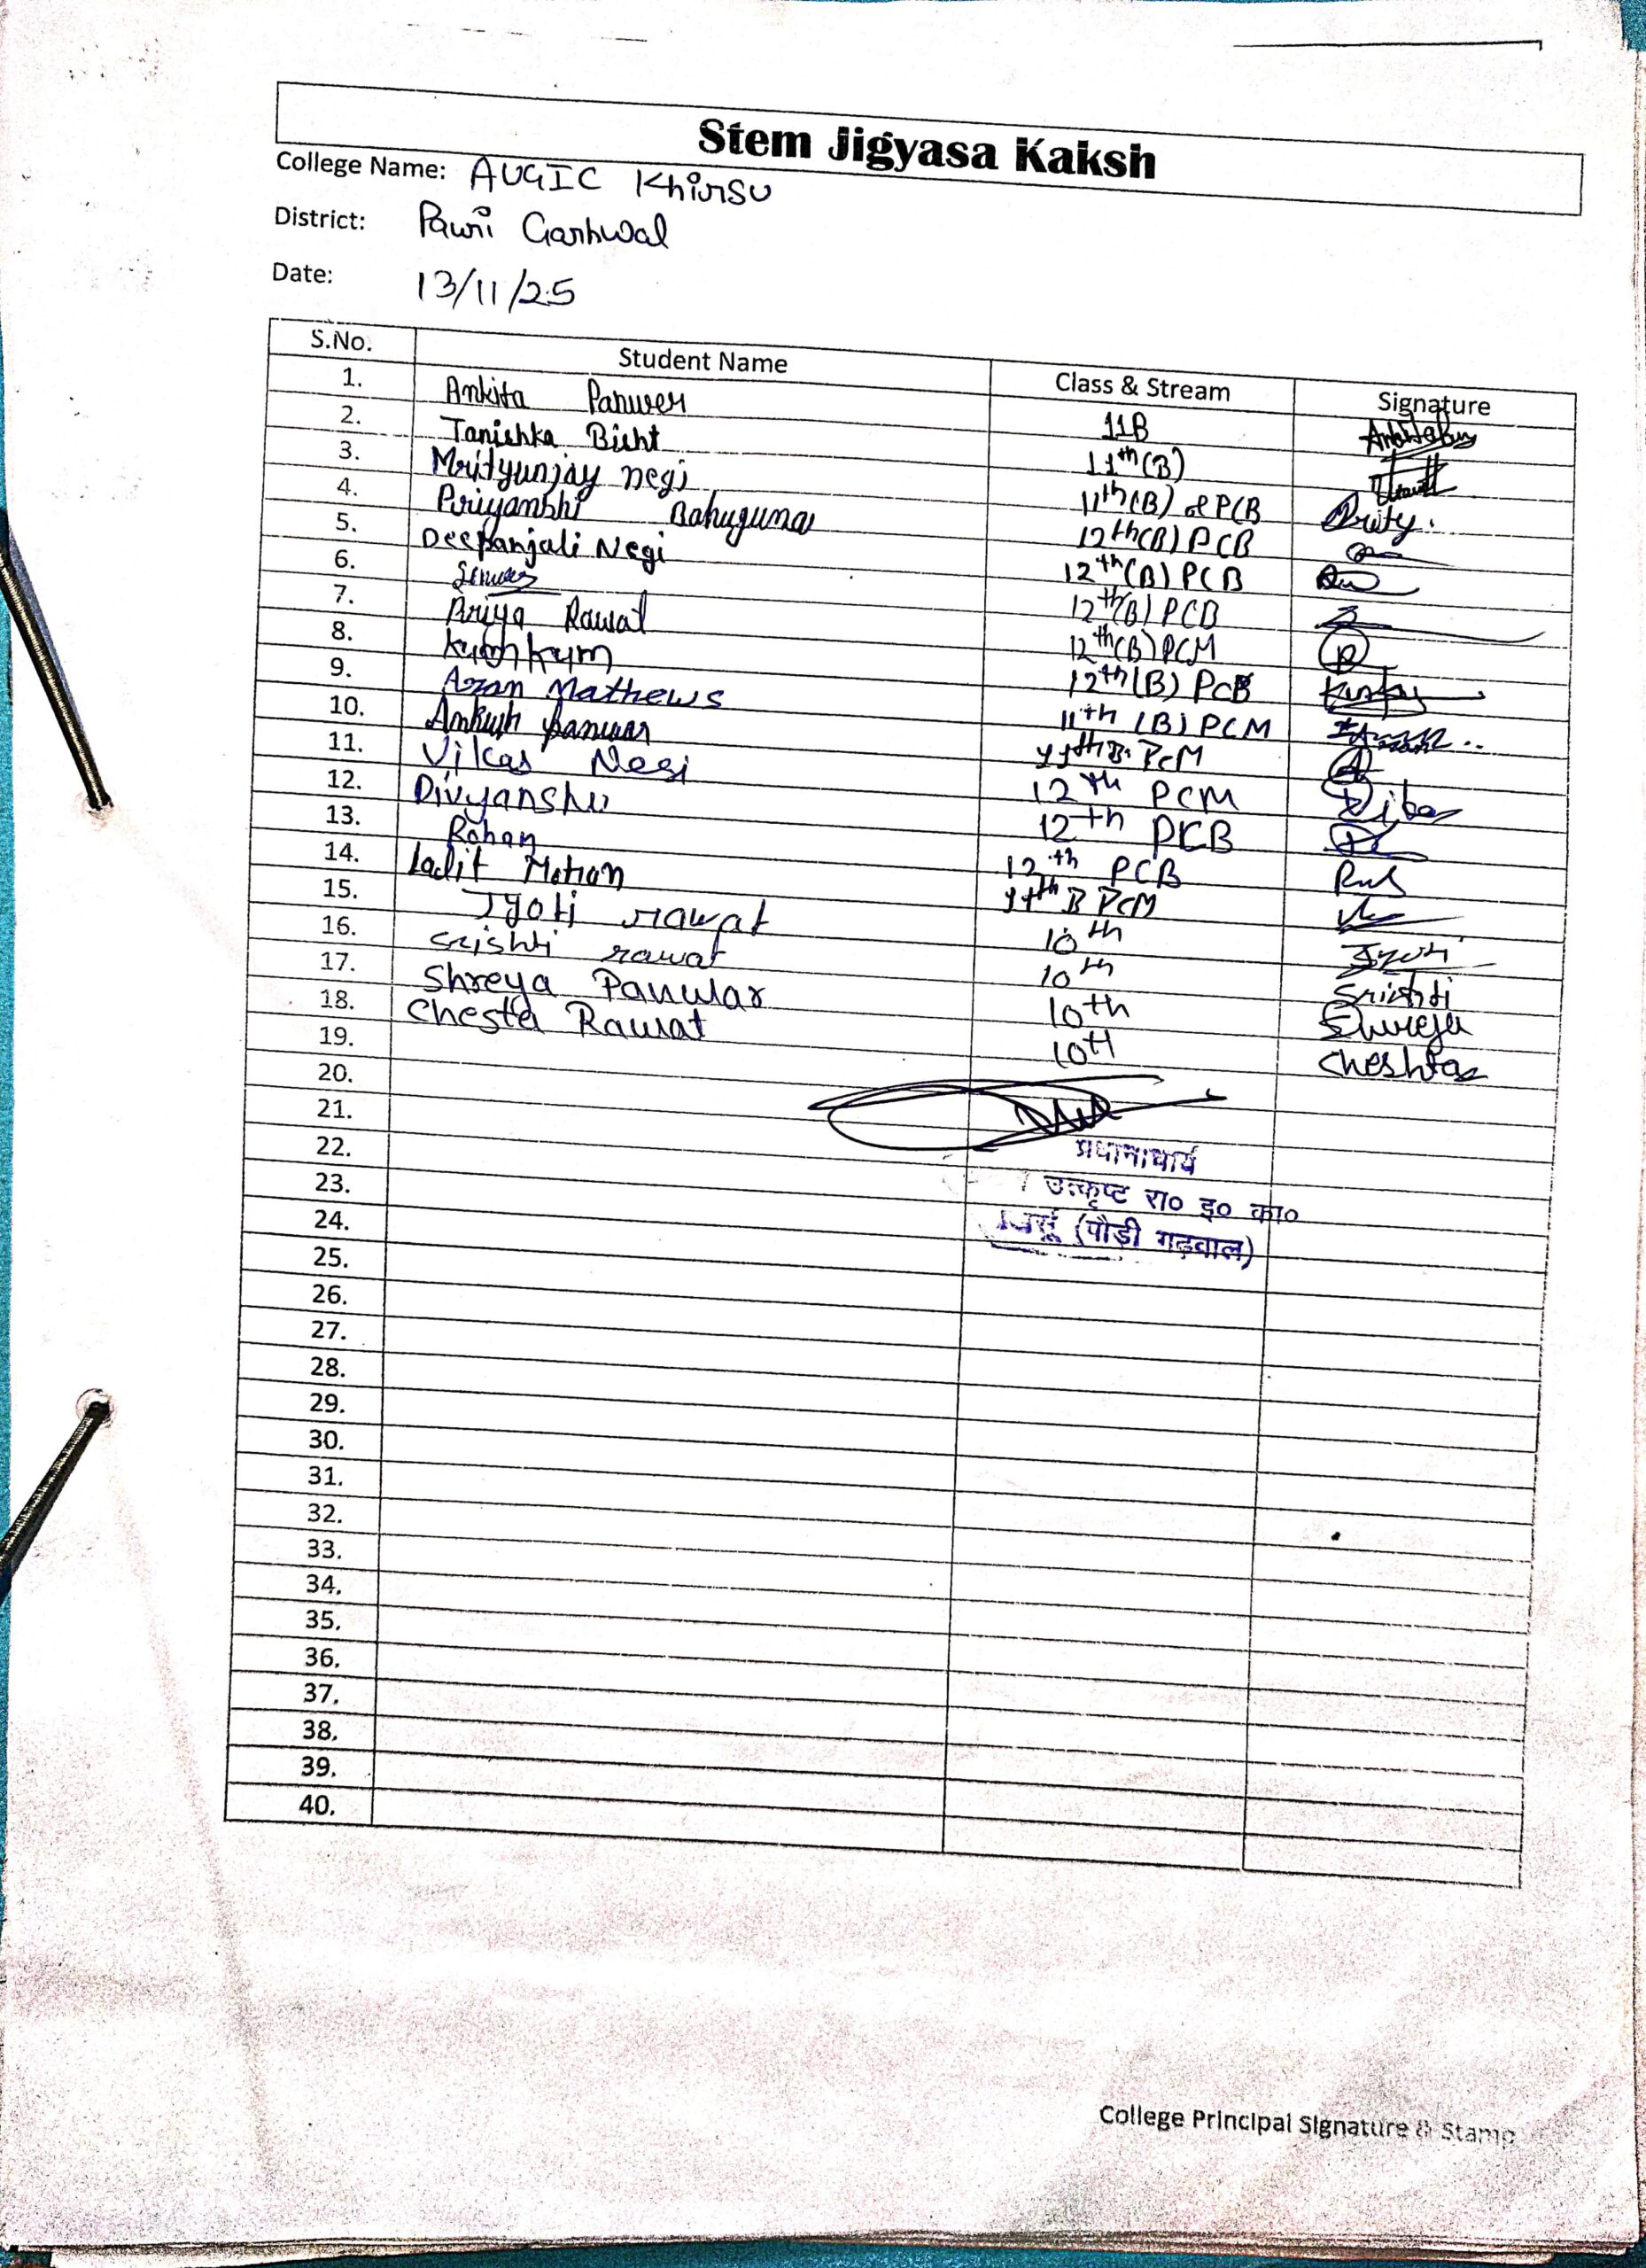 Stem Jigyasa Kaksh
College Name: AUGIC Khirsu
District: Pauri Garhwal
Date: 13/11/25
S.No. Student Name Class & Stream Signature
1. Ankita Panwer 11B
2. Tanishka Bisht 11th (B)
3. Mrityunjay negi 11th (B) PCB
4. Priyanshi Bahuguna 12th (B) PCB
5. Deepanjali Negi 12th (B) PCB
6. 12th (B) PCB
7. Priya Rawat 12th (B) PCM
8. Kumkum 12th (B) PCB
9. Azan Mathews 11th (B) PCM
10. Ankush panwar 11th B. PCM
11. Vikas Negi 12th PCM
12. Divyanshu 12th PCB
13. Rohan 12th PCB
14. Lalit Mohan 11th B PCM
15. Jyoti rawat 10th Jyoti
16. Srishti rawat 10th Srishti
17. Shreya Panwar 10th Shreya
18. Chesta Rawat 10th Cheshta
19.
20.
21.
22. प्रधानाचार्य
23. उत्कृष्ट रा० इ० का०
24. (पौड़ी गढ़वाल)
25.
26.
27.
28.
29.
30.
31.
32.
33.
34.
35.
36.
37.
38.
39.
40.
College Principal Signature & Stamp